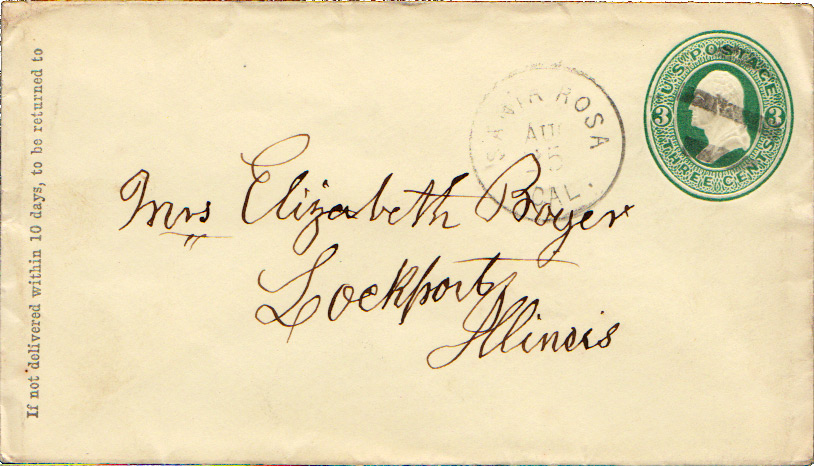 If not delivered within 10 days, to be returned to
U.S. POSTAGE
3 3
THREE CENTS
SANTA ROSA
AUG
CAL.
Mrs Elizabeth Boyer
Lockport
Illinois